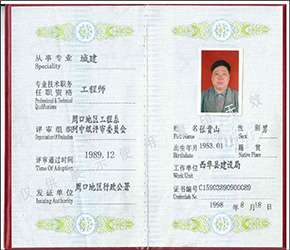 从事专业 城建
Speciality
专业技术职务
任职资格 工程师
Professional & Technical
Qualifications
周口地区工程系
评审组织 列中级评审委员会
Evaluation Organization
评审通过时间 1989.12
Time Of Adoption
发证单位 周口地区行政公署
Issuing Authority
姓名 任青山 性别 男
Full Name Sex
出生年月 1953.01 籍贯
Birthdate Native Place
工作单位 西华县建设局
Work Unit
证书编号 C15903890900089
Credentials No.
1998 8月18日